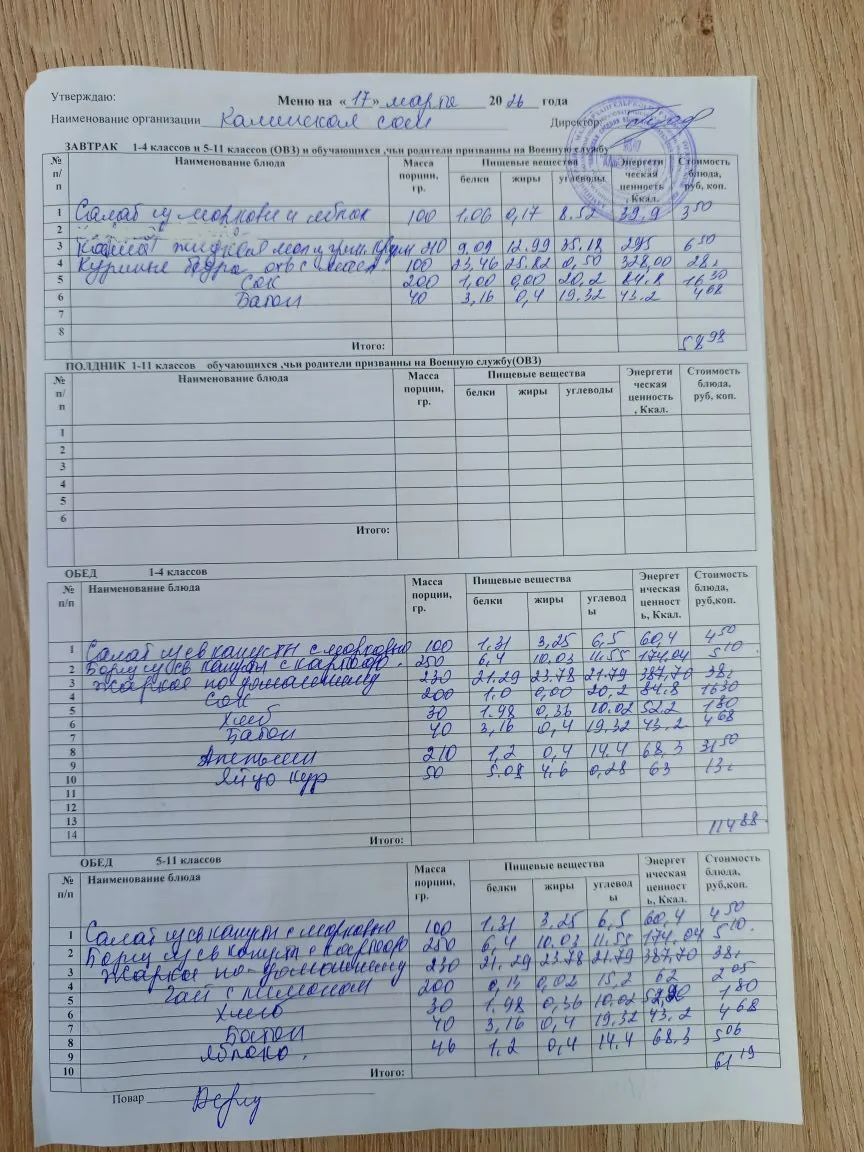 Утверждаю: Меню на «17» марта 2026 года
Наименование организации Каминская сош Директор:
ЗАВТРАК 1-4 классов и 5-11 классов (ОВЗ) и обучающихся ,чьи родители призванны на Военную службу
№ п/п Наименование блюда Масса порции, гр. Пищевые вещества Энергети ческая ценность , Ккал. Стоимость блюда, руб, коп.
белки жиры углеводы
1 Салат из моркови и яблок 100 1,06 0,17 8.52 39,9 3 50
2
3 Каша жидкая 210 9.09 12.99 35.18 295 6 50
4 Куриные бедра отв с масл 100 23,46 25.82 0,50 328,00 28
5 Сок 200 1,00 0,00 20,2 84.8 16 30
6 Батон 40 3,16 0,4 19.32 43.2 4 68
7
8
Итого: 58 98
ПОЛДНИК 1-11 классов обучающихся ,чьи родители призванны на Военную службу(ОВЗ)
№ п/п Наименование блюда Масса порции, гр. Пищевые вещества Энергети ческая ценность , Ккал. Стоимость блюда, руб, коп.
белки жиры углеводы
1
2
3
4
5
6
Итого:
ОБЕД 1-4 классов
№ п/п Наименование блюда Масса порции, гр. Пищевые вещества Энергет ическая ценност ь, Ккал. Стоимость блюда, руб,коп.
белки жиры углевод ы
1 Салат из св капусты с морковью 100 1,31 3,25 6,5 60,4 4 50
2 Борщ из св капусты с картофо. 250 6,4 10.03 11.55 174,04 5 10
3 Жаркое по домашнему 230 21.29 23.78 21.79 387,70 38
4 Сок 200 1,0 0,00 20,2 84.8 16 30
5 Хлеб 30 1.98 0,36 10.02 52.2 1 80
6 Батон 40 3,16 0,4 19,32 43.2 4 68
7
8 Апельсин 210 1,2 0,4 14,4 68,3 31 50
9 Яйцо кур 50 5.08 4,6 0,28 63 13
10
11
12
13
14 Итого: 114 88
ОБЕД 5-11 классов
№ п/п Наименование блюда Масса порции, гр. Пищевые вещества Энергет ическая ценност ь, Ккал. Стоимость блюда, руб,коп.
белки жиры углевод ы
1 Салат из св капусты с морковью 100 1,31 3,25 6,5 60,4 4 50
2 Борщ из св капусты с картофо 250 6,4 10.03 11.55 174,04 5 10.
3 Жаркое по-домашнему 230 21,29 23.78 21.79 387,70 38
4 Чай с лимоном 200 0,13 0,02 15,2 62 2 05
5 Хлеб 30 1.98 0,36 10,02 1 80
6 Батон 40 3,16 0,4 19,32 43.2 4 68
7 Яблоко. 46 1,2 0,4 14,4 68.3 5 06
8
9
10 Итого: 61 19
Повар